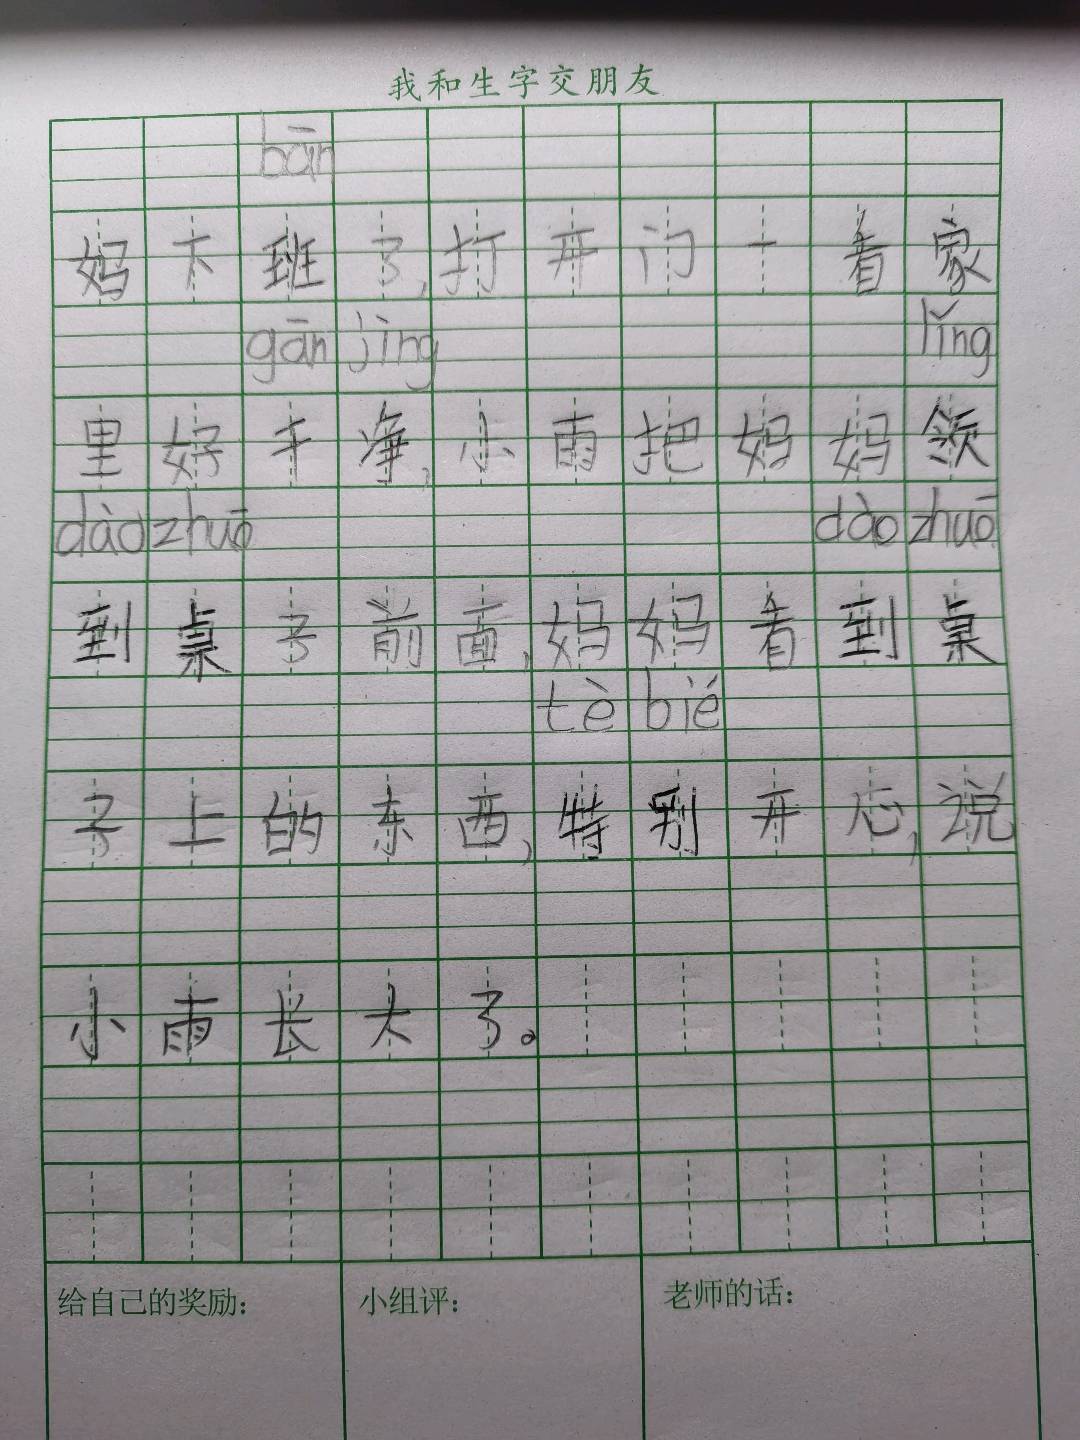 我和生字交朋友
bān
妈下班了,打开门一看家
gān jìng lǐng
里好干净,小雨把妈妈领
dào zhuō dào zhuō
到桌子前面,妈妈看到桌
tè bié
子上的东西,特别开心,说
小雨长大了。
给自己的奖励: 小组评: 老师的话: